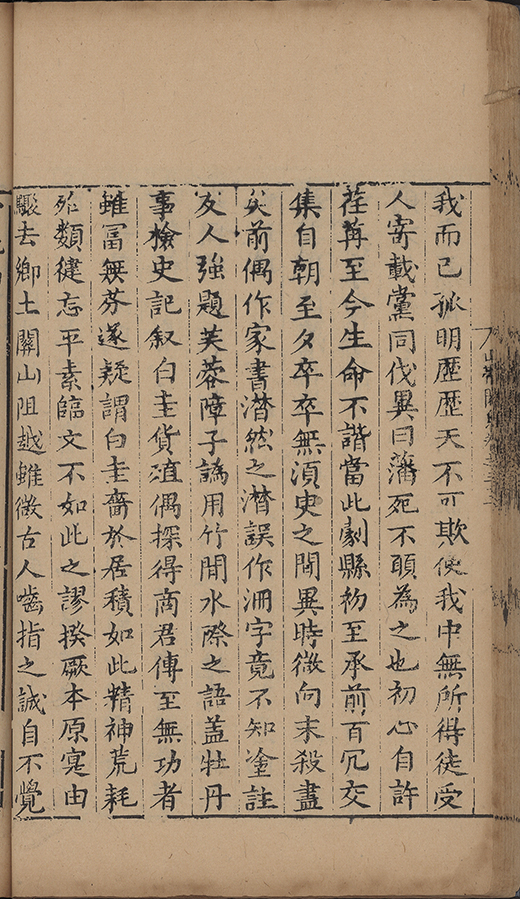 我而已孤明歷歷天不可欺使我中無所得徒受
人寄載黨同伐異曰藩死不頋為之也初心自許
荏苒至今生命不諧當此劇縣初至承前百冗交
集自朝至夕卒卒無湏臾之閒異時微向末殺盡
矣前偶作家書潸然之潸誤作泗字竟不知塗註
友人強題芙蓉障子譌用竹閒水際之語盖牡丹
事檢史記叙白圭貨殖偶探得商君傳至無功者
雖冨無芬遂疑謂白圭嗇於居積如此精神荒耗
殆類徤忘平素臨文不如此之謬揆厥本原寔由
驟去鄉土關山阻越雖微古人嚙指之誠自不覺